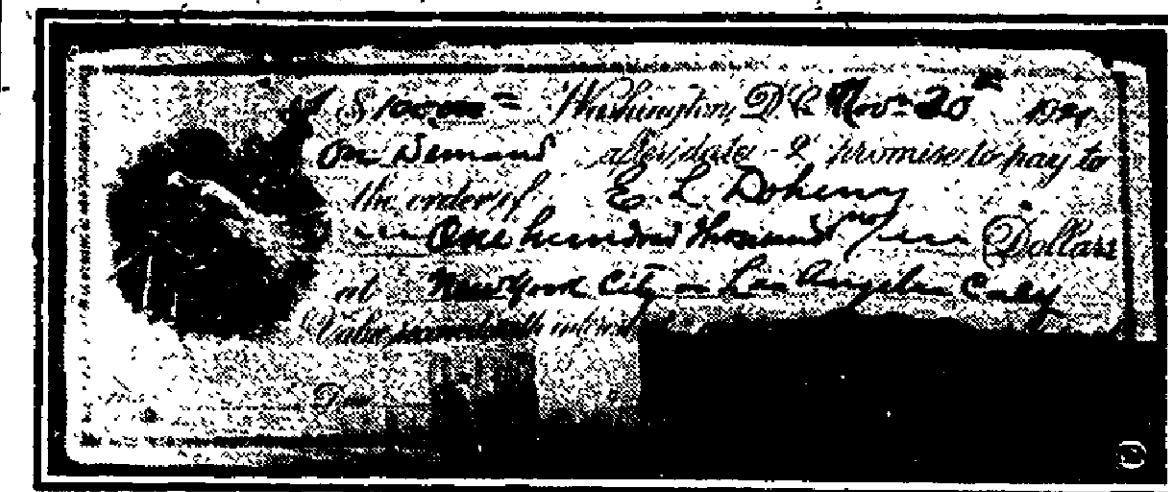 $100,000 = Washington, D.C. Nov. 20th 192
On Demand after date I promise to pay to
the order of E. L. Doheny
One hundred thousand no/ Dollars
at New York City or Los Angeles Calif
Value received with interest
No. Due